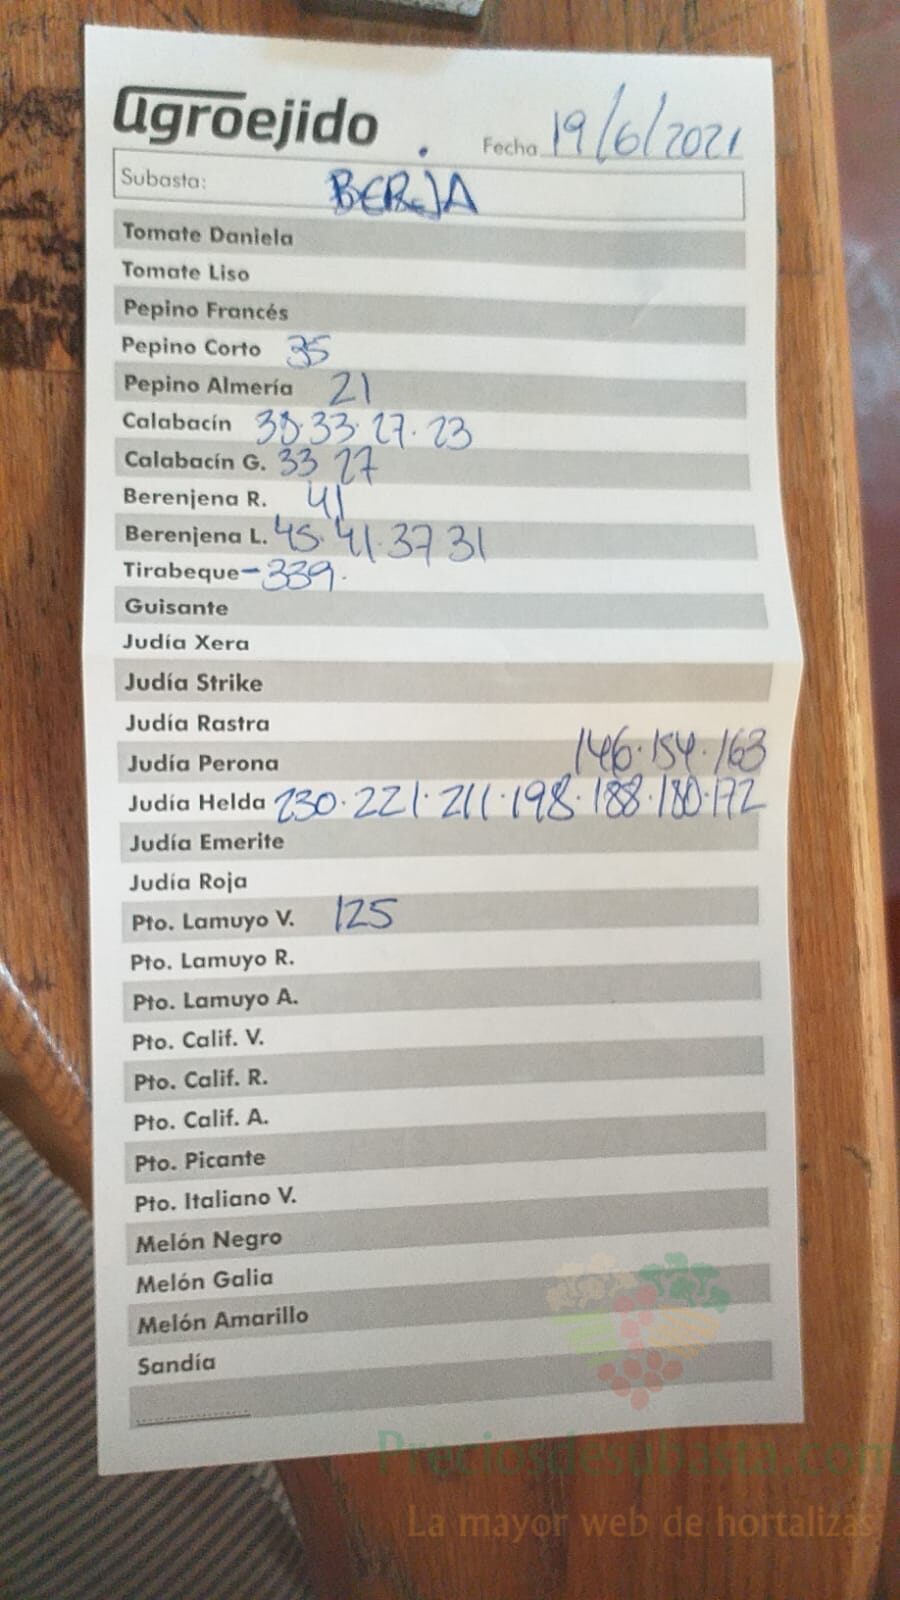 agroejido
Fecha 19/6/2021
Subasta: BERJA
Tomate Daniela
Tomate Liso
Pepino Francés
Pepino Corto 35
Pepino Almería 21
Calabacín 38·33·27·23
Calabacín G. 33 27
Berenjena R. 41
Berenjena L. 45·41·37 31
Tirabeque-339.
Guisante
Judía Xera
Judía Strike
Judía Rastra
146·154·163
Judía Perona
Judía Helda 230·221·211·198·188·180·172
Judía Emerite
Judía Roja
Pto. Lamuyo V. 125
Pto. Lamuyo R.
Pto. Lamuyo A.
Pto. Calif. V.
Pto. Calif. R.
Pto. Calif. A.
Pto. Picante
Pto. Italiano V.
Melón Negro
Melón Galia
Melón Amarillo
Sandía
Preciosdesubasta.com
La mayor web de hortalizas